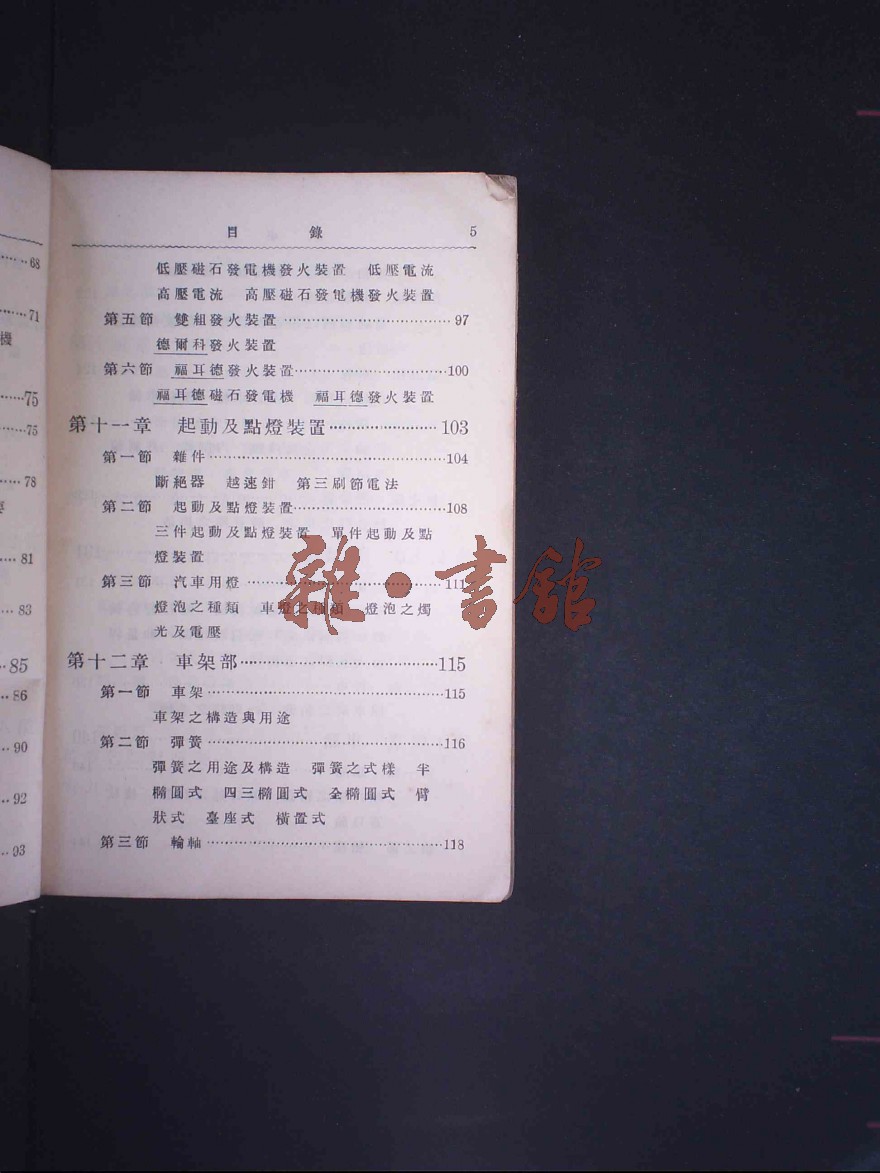 68
71
機
75
75
78
81
83
85
86
90
92
93
目錄 5
低壓磁石發電機發火裝置 低壓電流
高壓電流 高壓磁石發電機發火裝置
第五節 雙組發火裝置……………………………97
德爾科發火裝置
第六節 福耳德發火裝置…………………………100
福耳德磁石發電機 福耳德發火裝置
第十一章 起動及點燈裝置……………………103
第一節 雜件………………………………………104
斷絕器 越速鉗 第三刷節電法
第二節 起動及點燈裝置…………………………108
三件起動及點燈裝置 單件起動及點
燈裝置
第三節 汽車用燈…………………………………111
燈泡之種類 車燈之種類 燈泡之燭
光及電壓
第十二章 車架部…………………………………115
第一節 車架………………………………………115
車架之構造與用途
第二節 彈簧………………………………………116
彈簧之用途及構造 彈簧之式樣 半
橢圓式 四三橢圓式 全橢圓式 臂
狀式 臺座式 橫置式
第三節 輪軸………………………………………118
雜·書館